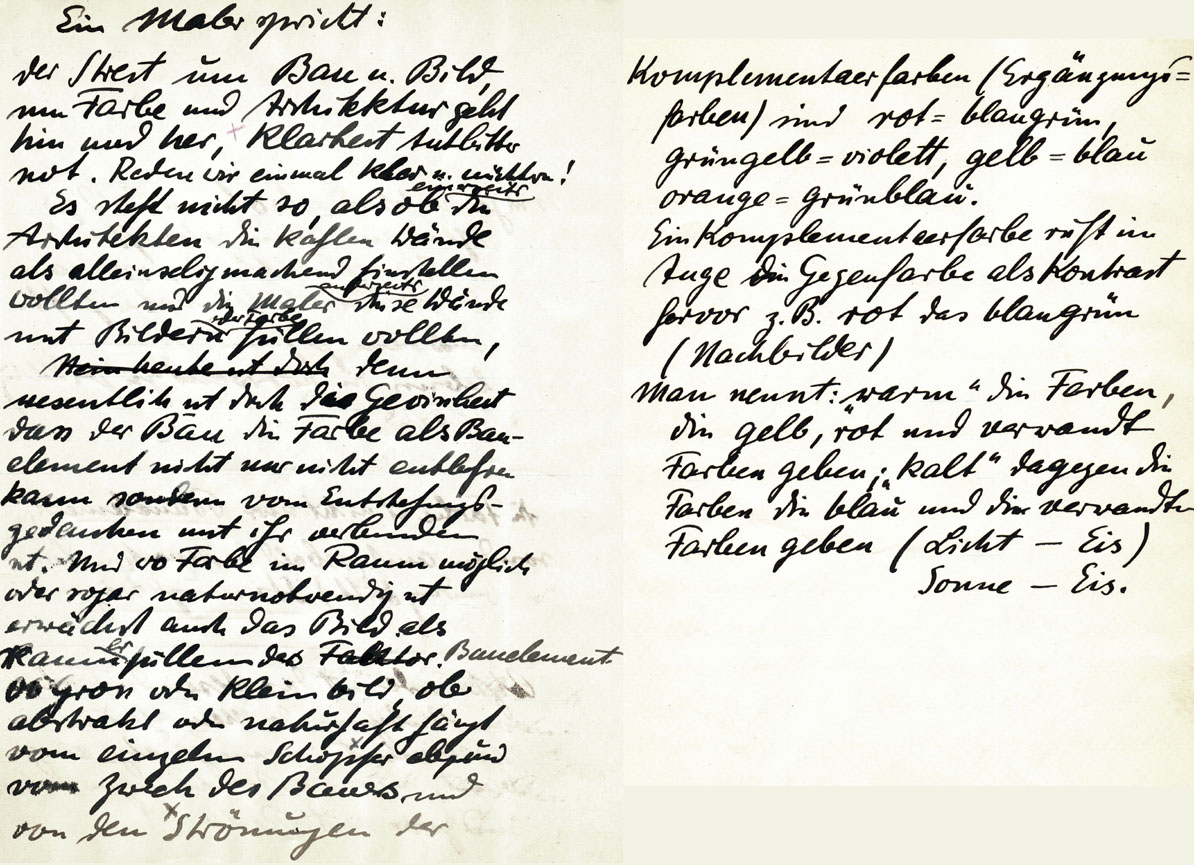 Ein Maler spricht:
der Streit um Bau u. Bild,
um Farbe und Architektur geht
hin und her, Klarheit tut bitter
not. Reden wir einmal klar u. nüchtern!
einerseits
Es steht nicht so, als ob die
Architekten die kahlen Wände
als alleinseligmachend hinstellen
anderseits
wollten und die Maler diese Wände
oder Farbe
mit Bildern füllen wollten,
denn
wesentlich ist doch die Gewissheit
dass der Bau die Farbe als Bau-
element nicht nur nicht entbehren
kann sondern vom Entstehungs-
gedanken mit ihr verbunden
ist. Und wo Farbe im Raum möglich
oder sogar naturnotwendig ist
erwächst auch das Bild als
raumfüllender Faktor. Bauelement
ob gross oder Kleinbild, ob
abstrakt oder naturhaft hängt
vom einzelnen Schöpfer ab und
vom Zweck des Baues und
von den Strömungen der
Komplementaerfarben (Ergänzungs=
farben) sind rot = blaugrün,
grüngelb = violett, gelb = blau
orange = grünblau.
Ein Komplementaerfarbe ruft im
Auge die Gegenfarbe als Kontrast
hervor z. B. rot das blaugrün
(Nachbilder)
Man nennt „warm“ die Farben,
die gelb, rot und verwandte
Farben geben, „kalt“ dagegen die
Farben die blau und die verwandten
Farben geben (Licht — Eis)
Sonne — Eis.